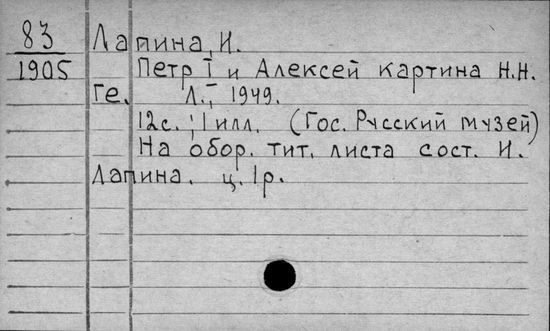 83 Лапина, И.
1905 Петр I и Алексей картина Н.Н.
Ге. Л., 1949.
12с.; 1 илл. (Гос. Русский музей)
На обор. тит. листа сост. И.
Лапина. ц. 1р.